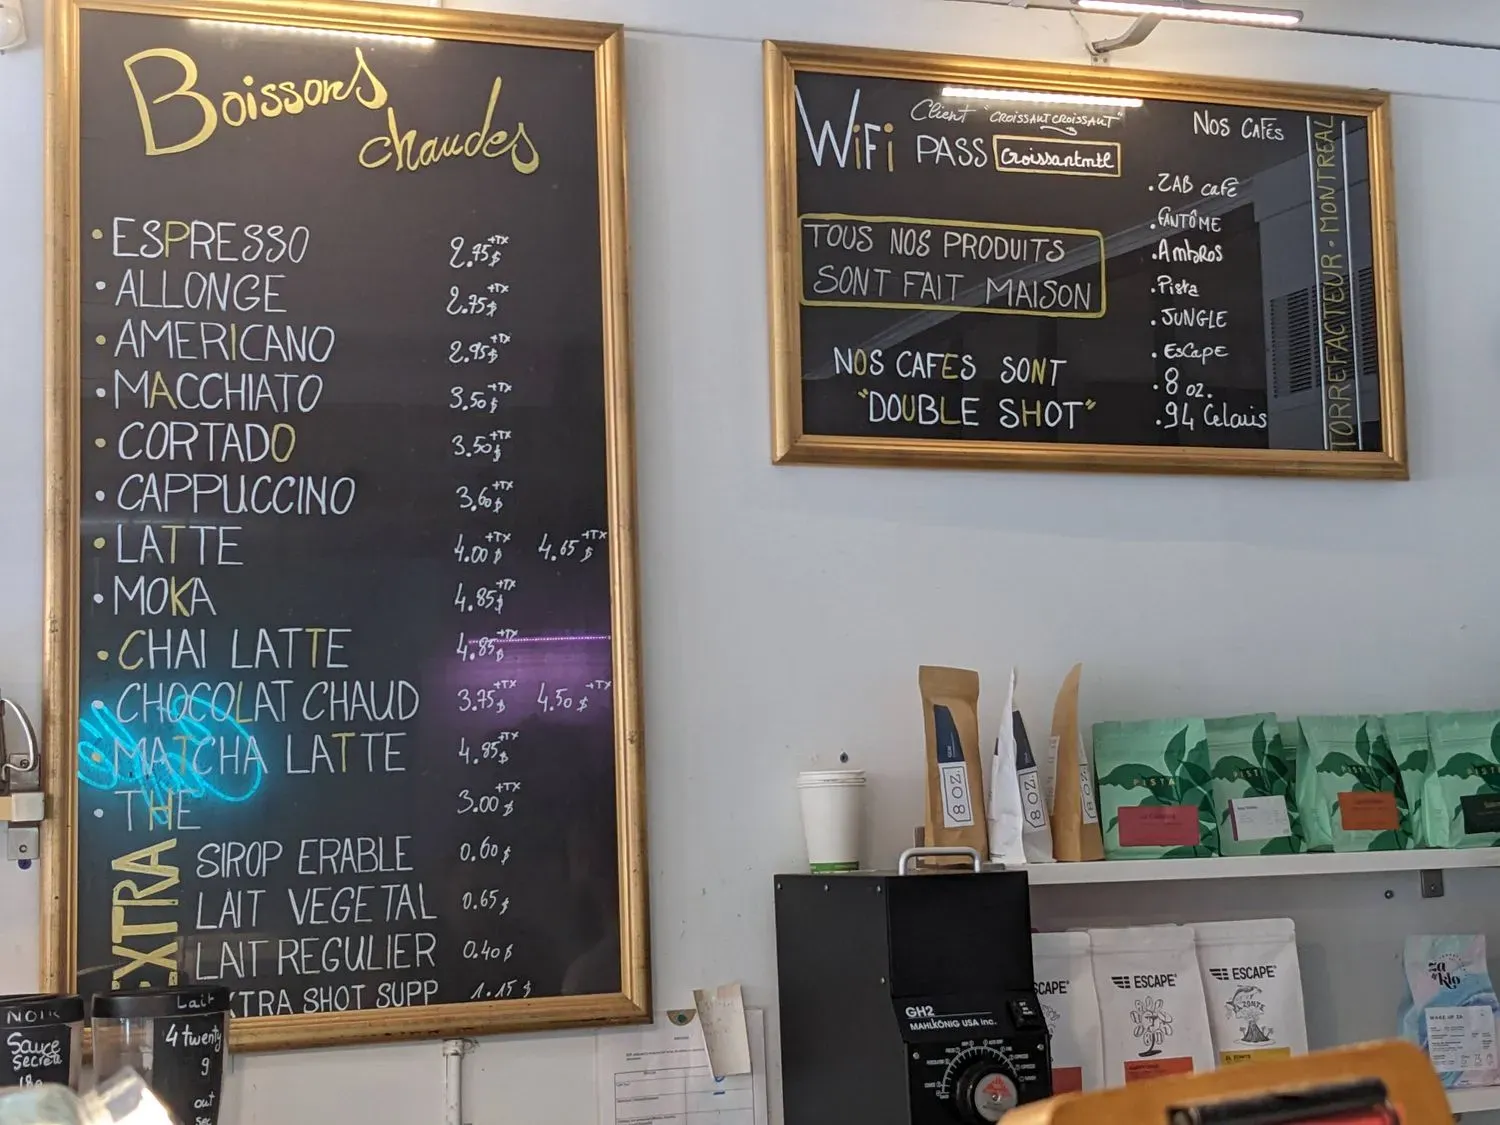 Boissons
chaudes
• ESPRESSO 2.75$ +TX
• ALLONGE 2.75$ +TX
• AMERICANO 2.95$ +TX
• MACCHIATO 3.50$ +TX
• CORTADO 3.50$ +TX
• CAPPUCCINO 3.60$ +TX
• LATTE 4.00$ +TX 4.65$ +TX
• MOKA 4.85$ +TX
• CHAI LATTE 4.85$ +TX
• CHOCOLAT CHAUD 3.75$ +TX 4.50$ +TX
• MATCHA LATTE 4.85$ +TX
• THE 3.00$ +TX
EXTRA
SIROP ERABLE 0.60$
LAIT VEGETAL 0.65$
LAIT REGULIER 0.40$
EXTRA SHOT SUPP 1.15$
WiFi Client "CROISSANT CROISSANT"
PASS Croissantmtl
TOUS NOS PRODUITS
SONT FAIT MAISON
NOS CAFES SONT
"DOUBLE SHOT"
NOS CAFÉS
• ZAB CAFÉ
• FANTÔME
• Ambros
• Pista
• JUNGLE
• EsCape
• 8 oz.
• 94 Celcius
TORREFACTEUR • MONTREAL
8 OZ.
8 OZ.
8 OZ.
PISTA
PISTA
PISTA
ESCAPE
ESCAPE
ESCAPE
EL ZONTE
GH2
MAHLKÖNIG USA inc.
NOIR
Sauce
Secrete
180
Lait
4 twenty
9
out
sec